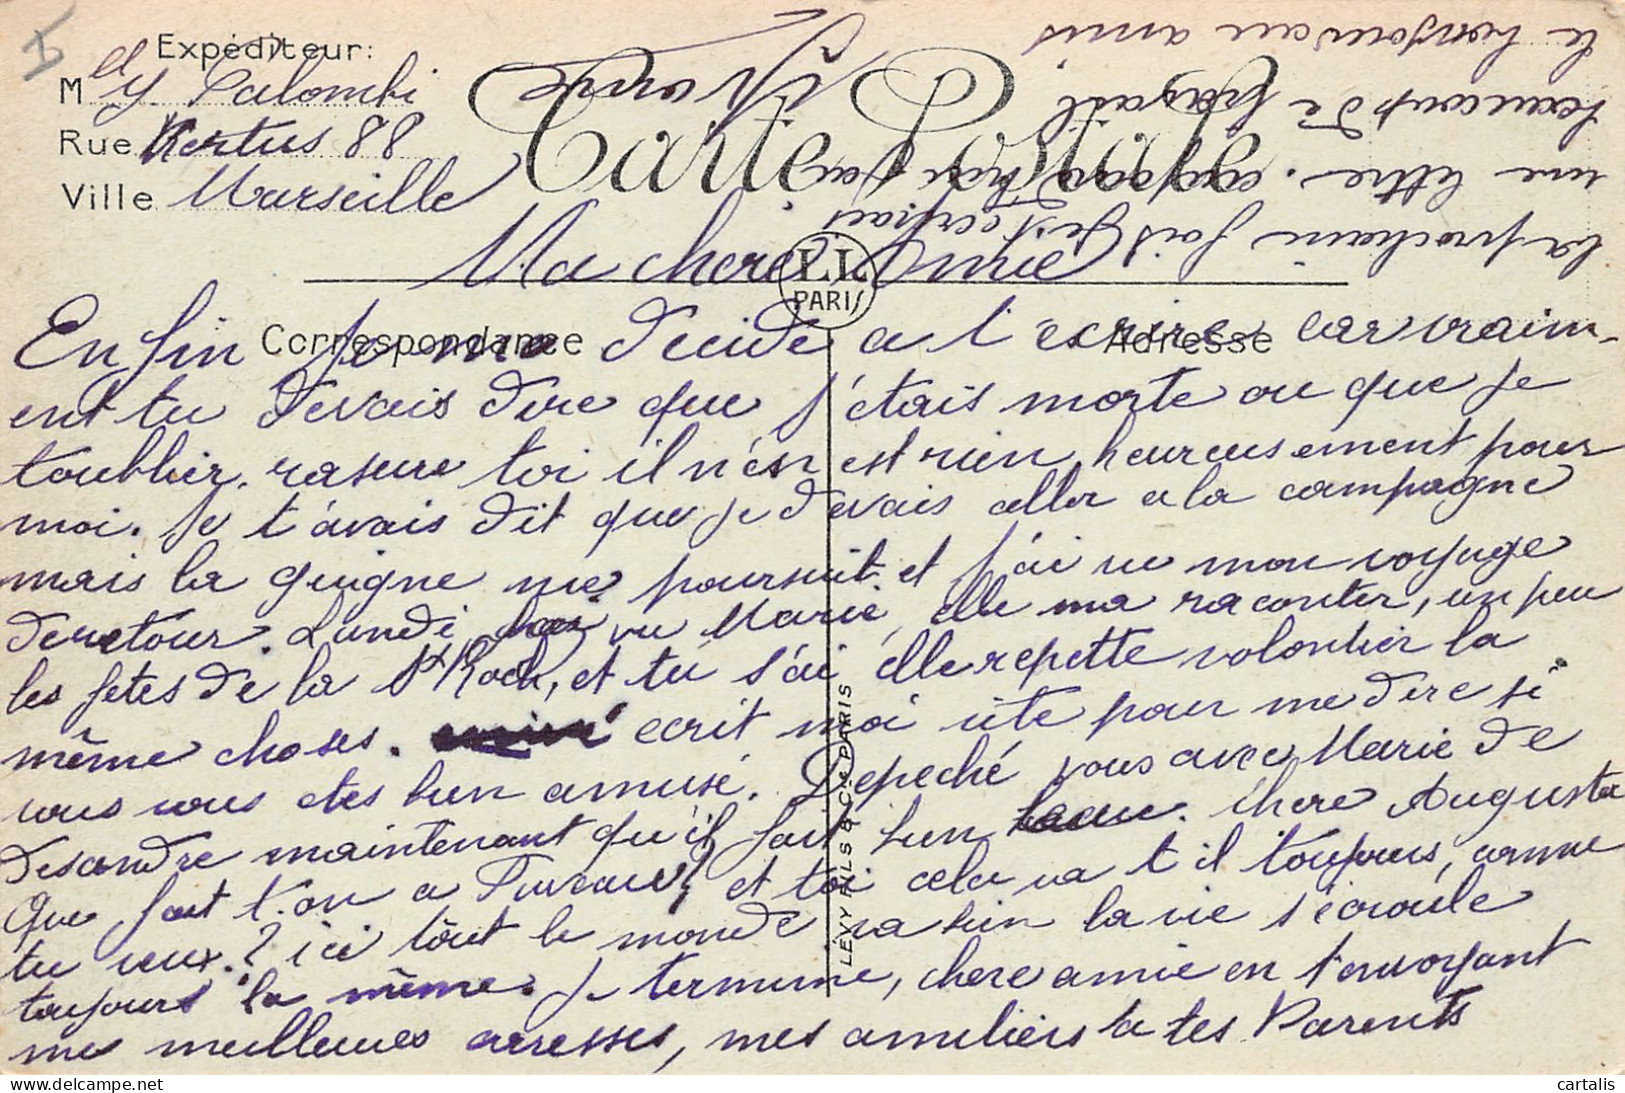 Expéditeur:
Mlly Palombi
Rue Kertus 88
Ville Marseille
Carte Postale
LL
PARIS
Correspondance
Adresse
LÉVY FILS & Cie PARIS
Ma chere Amie
Enfin je me decide a t'ecrire car vraim-
ent tu devais dire que j'étais morte ou que je
toublier. rasure toi il n'en est rien heureusement pour
moi. Je t'avais dit que je devais aller a la campagne
mais la guigne me poursuit et j'ai vu mon voyage
de retour. Lundi, vu Marie, elle ma raconter, un peu
les fetes de la St Roch, et tu s'ai elle repette volontier la
même choses. ecrit moi vite pour me dire si
vous vous etes bien amusé. Depeché vous avec Marie de
descendre maintenant qu'il fait bien beau. Chere Augusta
Que fait t'on a et toi cela va t il toujours, comme
tu veux.? ici tout le monde va bien la vie s'écroule
toujours la même. Je termine, chere amie en t'envoyant
mes meilleures caresses, mes amitiers a tes Parents
la prochaine fois je t'ecrirai
une lettre.
beaucoup de
le bonjour au amis